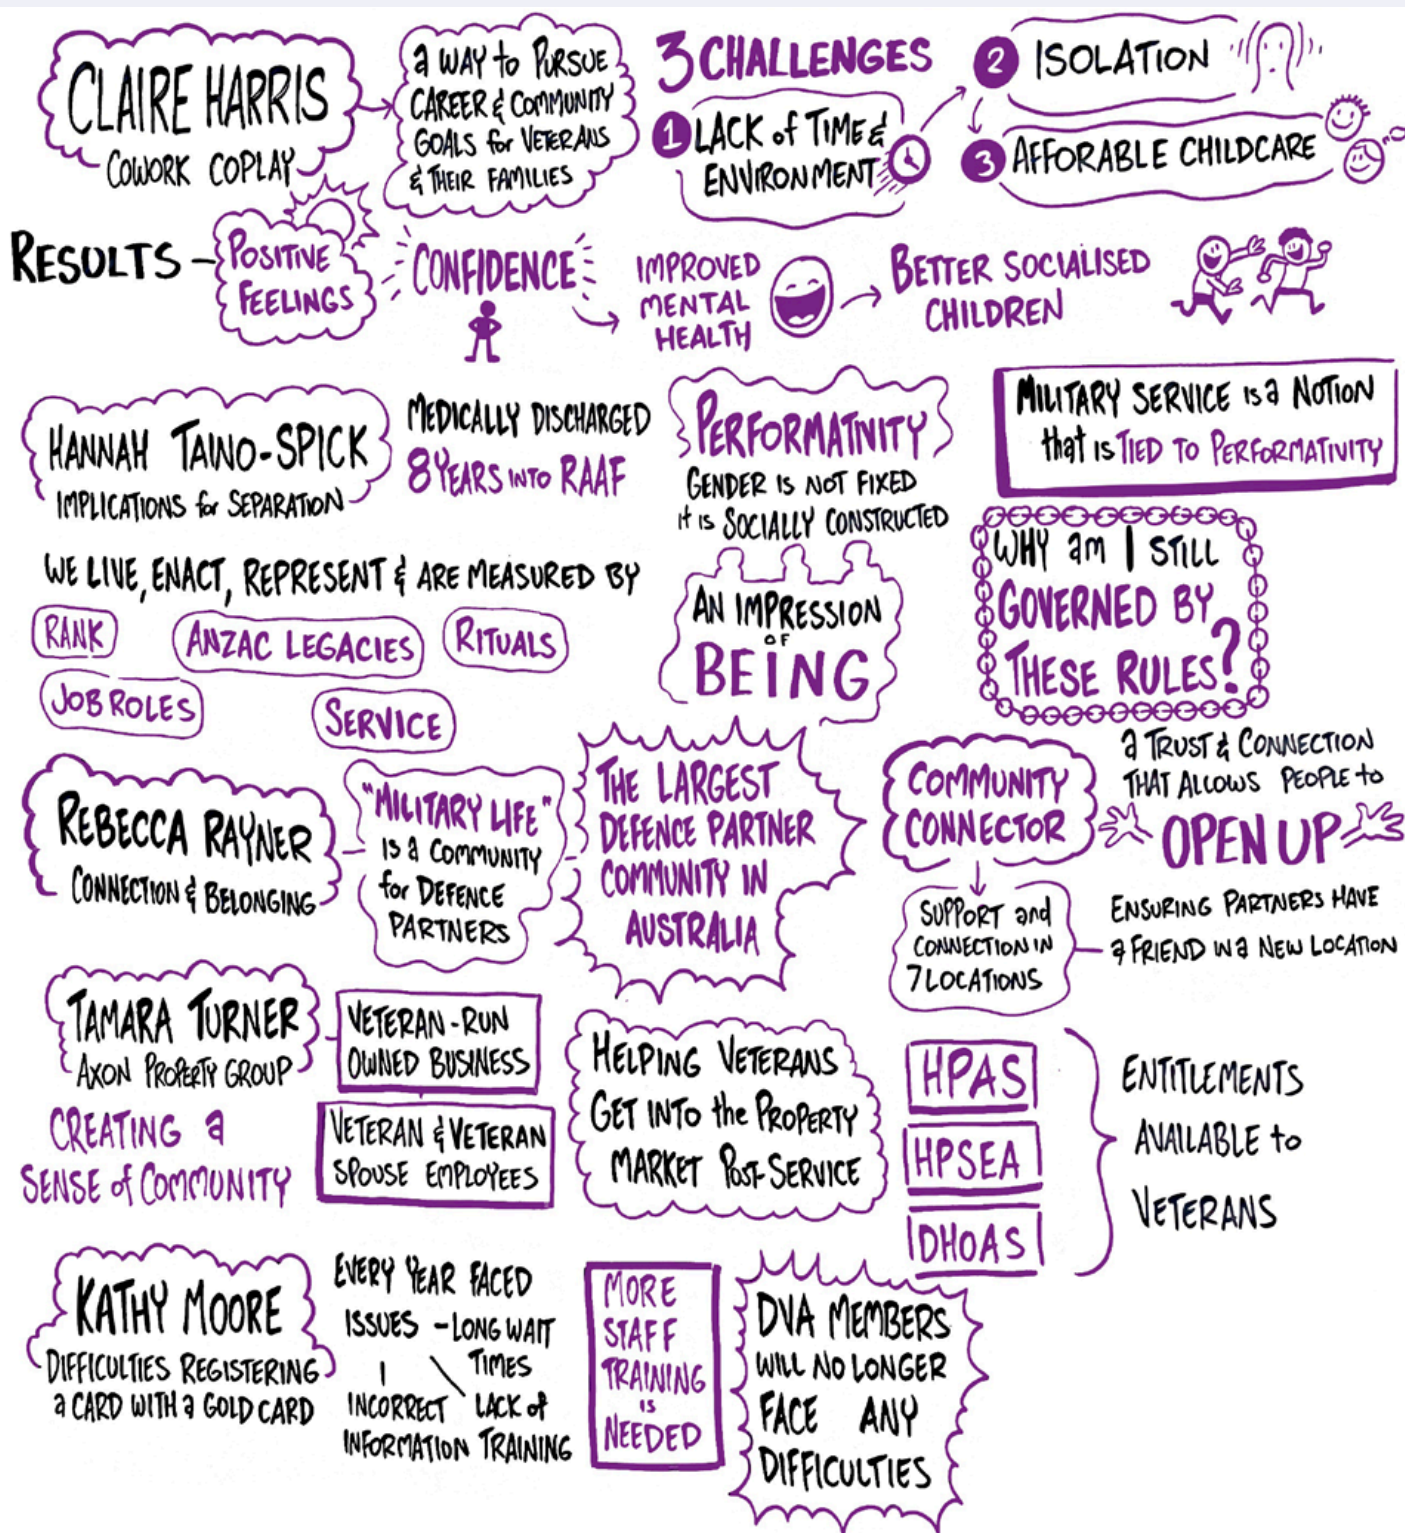 CLAIRE HARRIS
COWORK COPLAY
a WAY to PURSUE
CAREER & COMMUNITY
GOALS for VETERANS
& THEIR FAMILIES
3 CHALLENGES
1 LACK of TIME &
ENVIRONMENT
2 ISOLATION
3 AFFORABLE CHILDCARE
RESULTS -
POSITIVE
FEELINGS
CONFIDENCE
IMPROVED
MENTAL
HEALTH
BETTER SOCIALISED
CHILDREN
HANNAH TAINO-SPICK
IMPLICATIONS for SEPARATION
MEDICALLY DISCHARGED
8 YEARS INTO RAAF
PERFORMATIVITY
GENDER IS NOT FIXED
it IS SOCIALLY CONSTRUCTED
MILITARY SERVICE is a NOTION
that is TIED TO PERFORMATIVITY
WE LIVE, ENACT, REPRESENT & ARE MEASURED BY
RANK
ANZAC LEGACIES
RITUALS
JOB ROLES
SERVICE
AN IMPRESSION
OF
BEING
WHY am I STILL
GOVERNED BY
THESE RULES?
REBECCA RAYNER
CONNECTION & BELONGING
"MILITARY LIFE"
IS a COMMUNITY
for DEFENCE
PARTNERS
THE LARGEST
DEFENCE PARTNER
COMMUNITY IN
AUSTRALIA
COMMUNITY
CONNECTOR
a TRUST & CONNECTION
THAT ALLOWS PEOPLE to
OPEN UP
SUPPORT and
CONNECTION IN
7 LOCATIONS
ENSURING PARTNERS HAVE
a FRIEND IN a NEW LOCATION
TAMARA TURNER
AXON PROPERTY GROUP
CREATING a
SENSE of COMMUNITY
VETERAN-RUN
OWNED BUSINESS
VETERAN & VETERAN
SPOUSE EMPLOYEES
HELPING VETERANS
GET INTO the PROPERTY
MARKET POST-SERVICE
HPAS
HPSEA
DHOAS
ENTITLEMENTS
AVAILABLE to
VETERANS
KATHY MOORE
DIFFICULTIES REGISTERING
a CARD WITH a GOLD CARD
EVERY YEAR FACED
ISSUES - LONG WAIT
TIMES
INCORRECT
INFORMATION
LACK of
TRAINING
MORE
STAFF
TRAINING
IS
NEEDED
DVA MEMBERS
WILL NO LONGER
FACE ANY
DIFFICULTIES